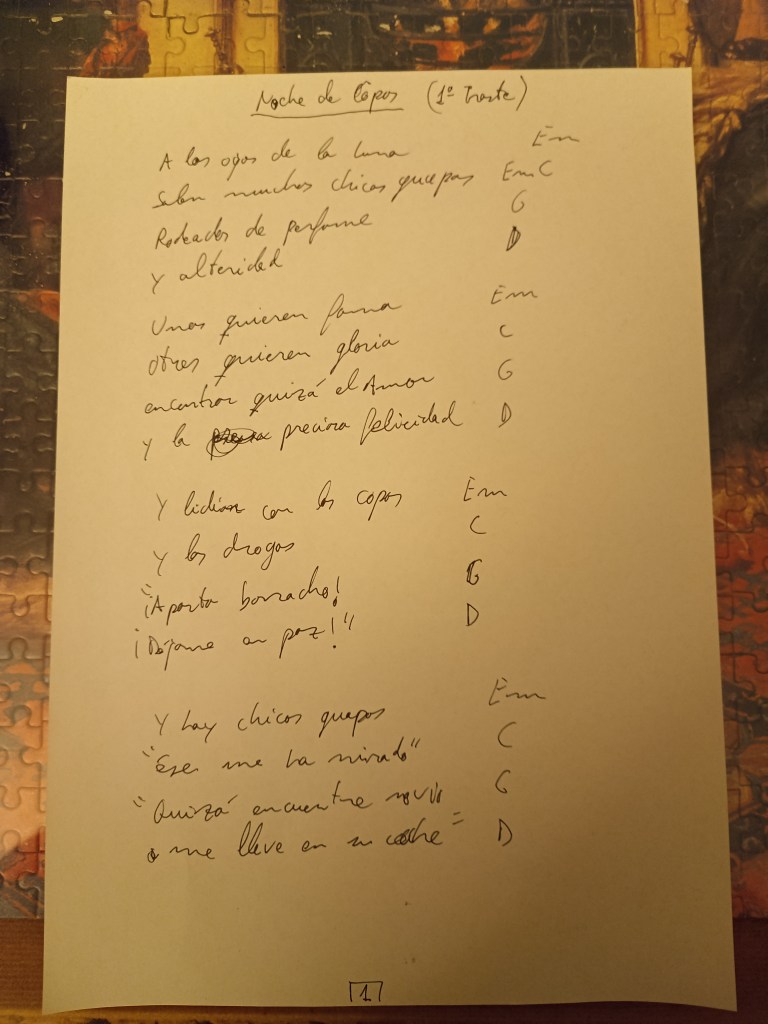 Noche de Copas (1º Traste)
A los ojos de la luna Em
Salen muchos chicos guapos Em C
Rodeados de perfume G
Y alteridad D
Unos quieren fama Em
Otros quieren gloria C
encontrar quizá el Amor G
y la preciosa felicidad D
Y lidian con las copas Em
Y las drogas C
"¡Aparta borracho! G
¡Déjame en paz!" D
Y hay chicos guapos Em
"Ese me ha mirado" C
"Quizá encuentre novio G
o me lleve en su coche" D
1